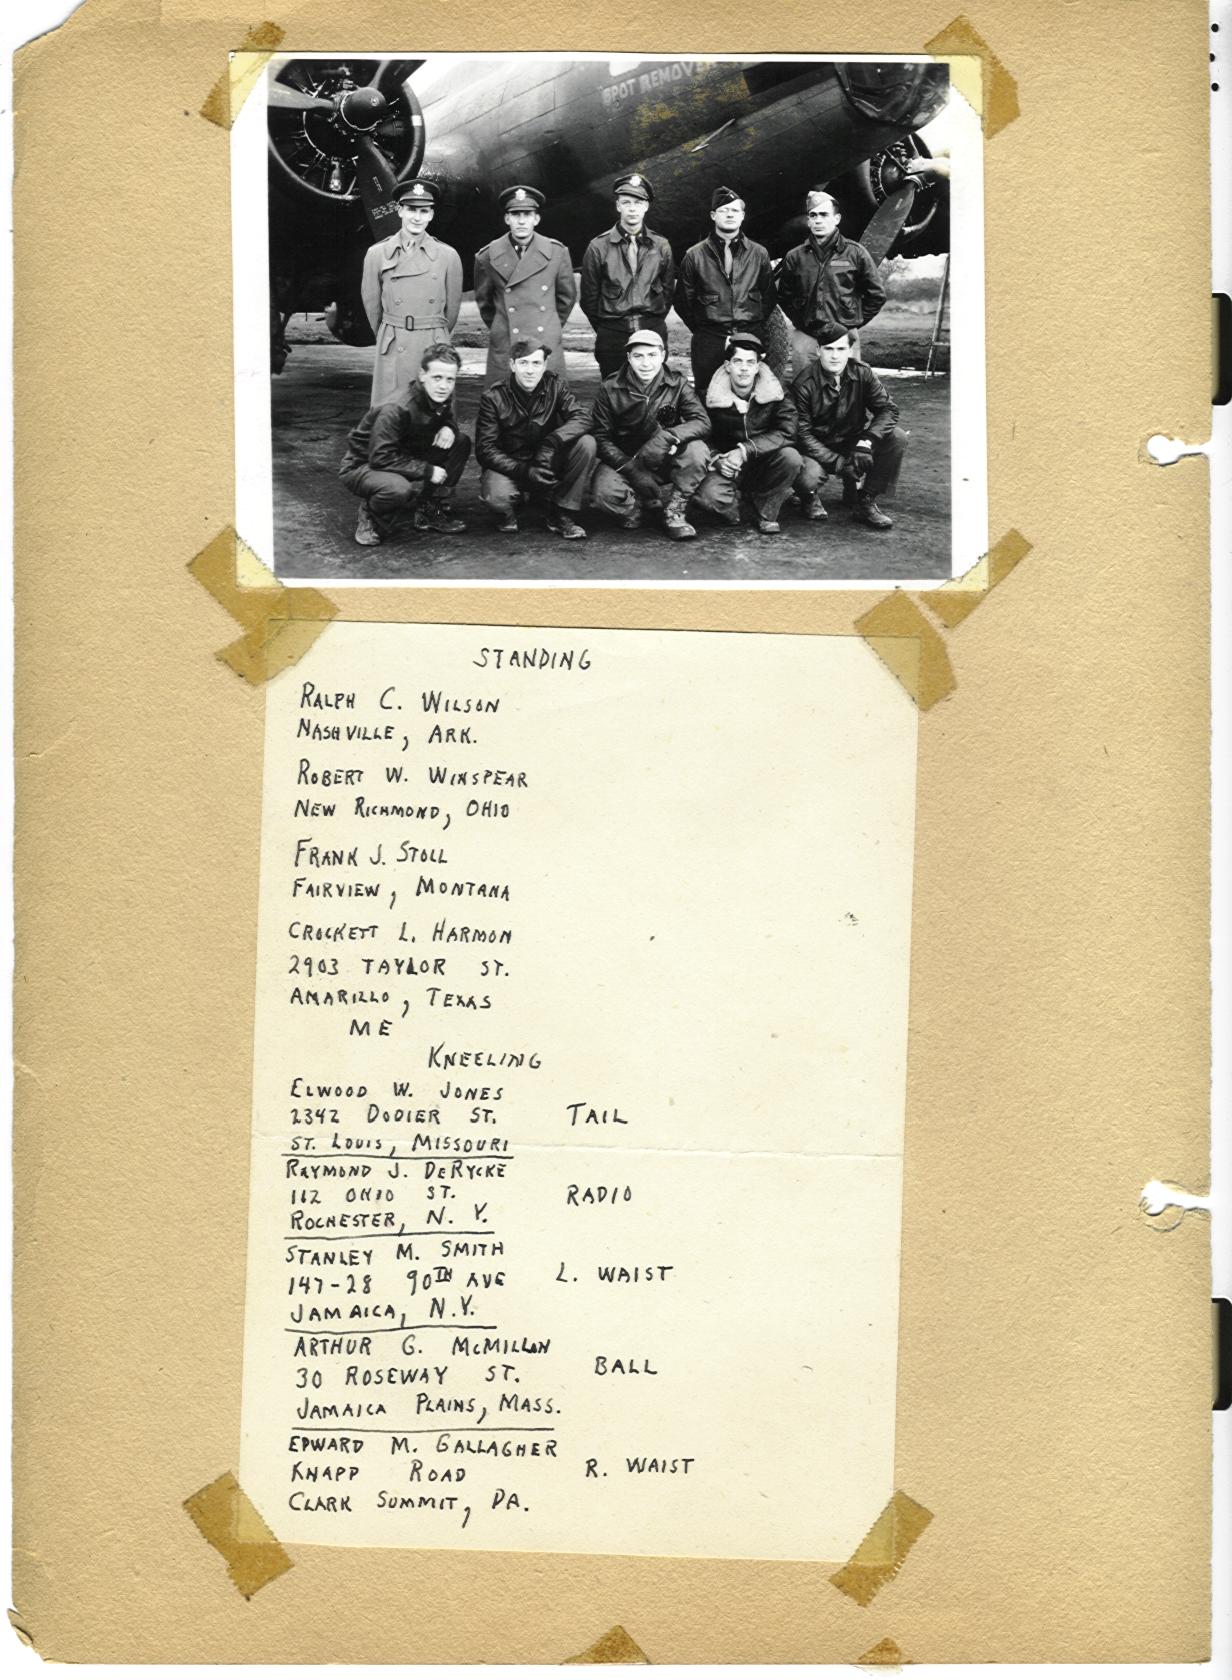 SPOT REMOVER
STANDING
RALPH C. WILSON
NASHVILLE, ARK.
ROBERT W. WINSPEAR
NEW RICHMOND, OHIO
FRANK J. STOLL
FAIRVIEW, MONTANA
CROCKETT L. HARMON
2903 TAYLOR ST.
AMARILLO, TEXAS
ME
KNEELING
ELWOOD W. JONES
2342 DODIER ST. TAIL
ST. LOUIS, MISSOURI
RAYMOND J. DERYCKE
112 OHIO ST. RADIO
ROCHESTER, N. Y.
STANLEY M. SMITH
147-28 90TH AVE L. WAIST
JAMAICA, N.Y.
ARTHUR G. McMILLAN
30 ROSEWAY ST. BALL
JAMAICA PLAINS, MASS.
EDWARD M. GALLAGHER
KNAPP ROAD R. WAIST
CLARK SUMMIT, PA.